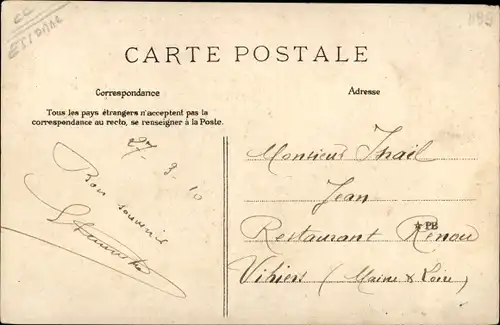 CARTE POSTALE
Correspondance
Tous les pays étrangers n'acceptent pas la
correspondance au recto, se renseigner à la Poste.
27-3-10
Bon souvenir
Adresse
Monsieur
Jean
Restaurant Renou
★PB
Vihiers (Maine & Loire)